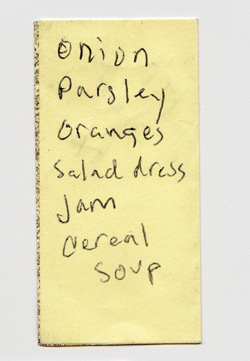 onion
Parsley
oranges
salad dress
Jam
cereal
soup